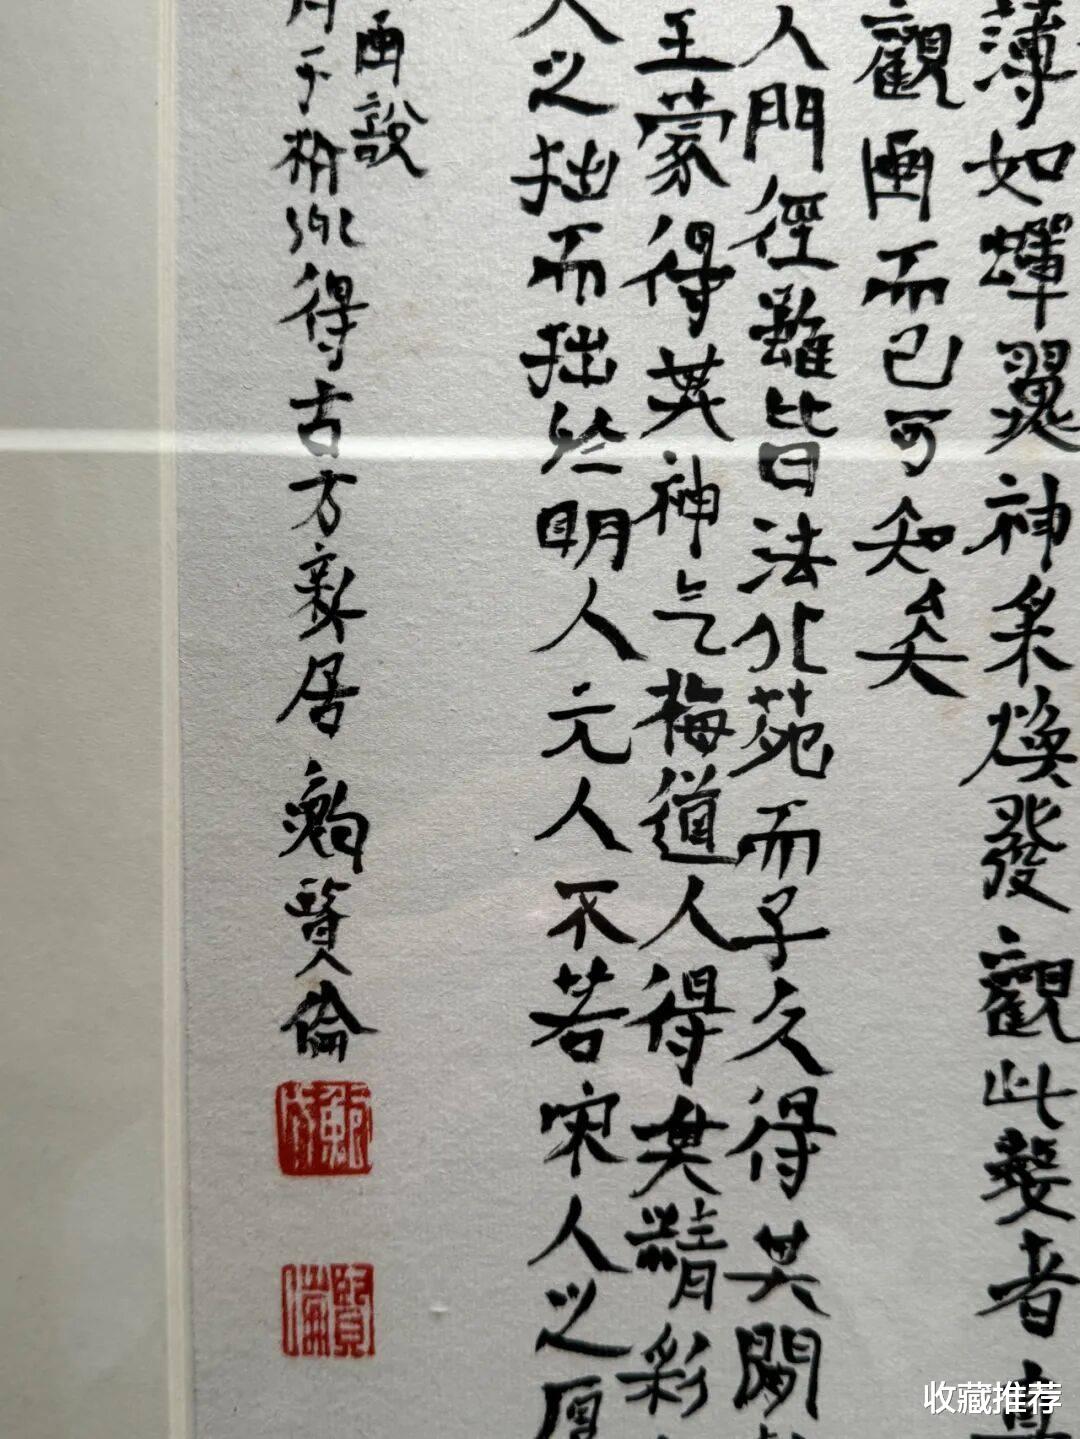 薄如蟬翼神采煥發觀此聲者直
觀画而已可知矣
人門徑雖皆法北苑而子久得其闊
王蒙得其神气梅道人得其精彩
人之拙而拙於明人元人不若宋人之厚
画說
得古方新居
賢倫
賢倫
收藏推荐